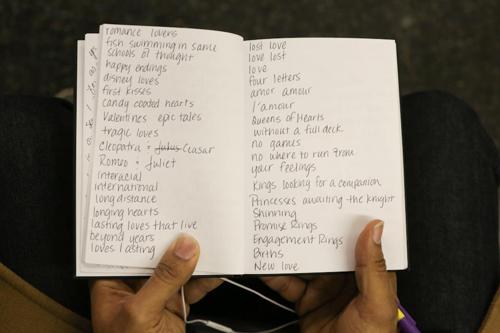 romance lovers
fish swimming in same
schools of thought
happy endings
disney loves
first kisses
candy coated hearts
Valentines epic tales
tragic loves
Cleopatra & Julus Ceasar
Romeo & Juliet
Interacial
international
long distance
longing hearts
lasting loves that live
beyond years
loves lasting
lost love
love lost
love
four letters
amor amour
l'amour
Queens of Hearts
without a full deck
no games
no where to run from
your feelings
Kings looking for a companion
Princesses awaiting the knight
Shinning
Promise Rings
Engagement Rings
Births
New love